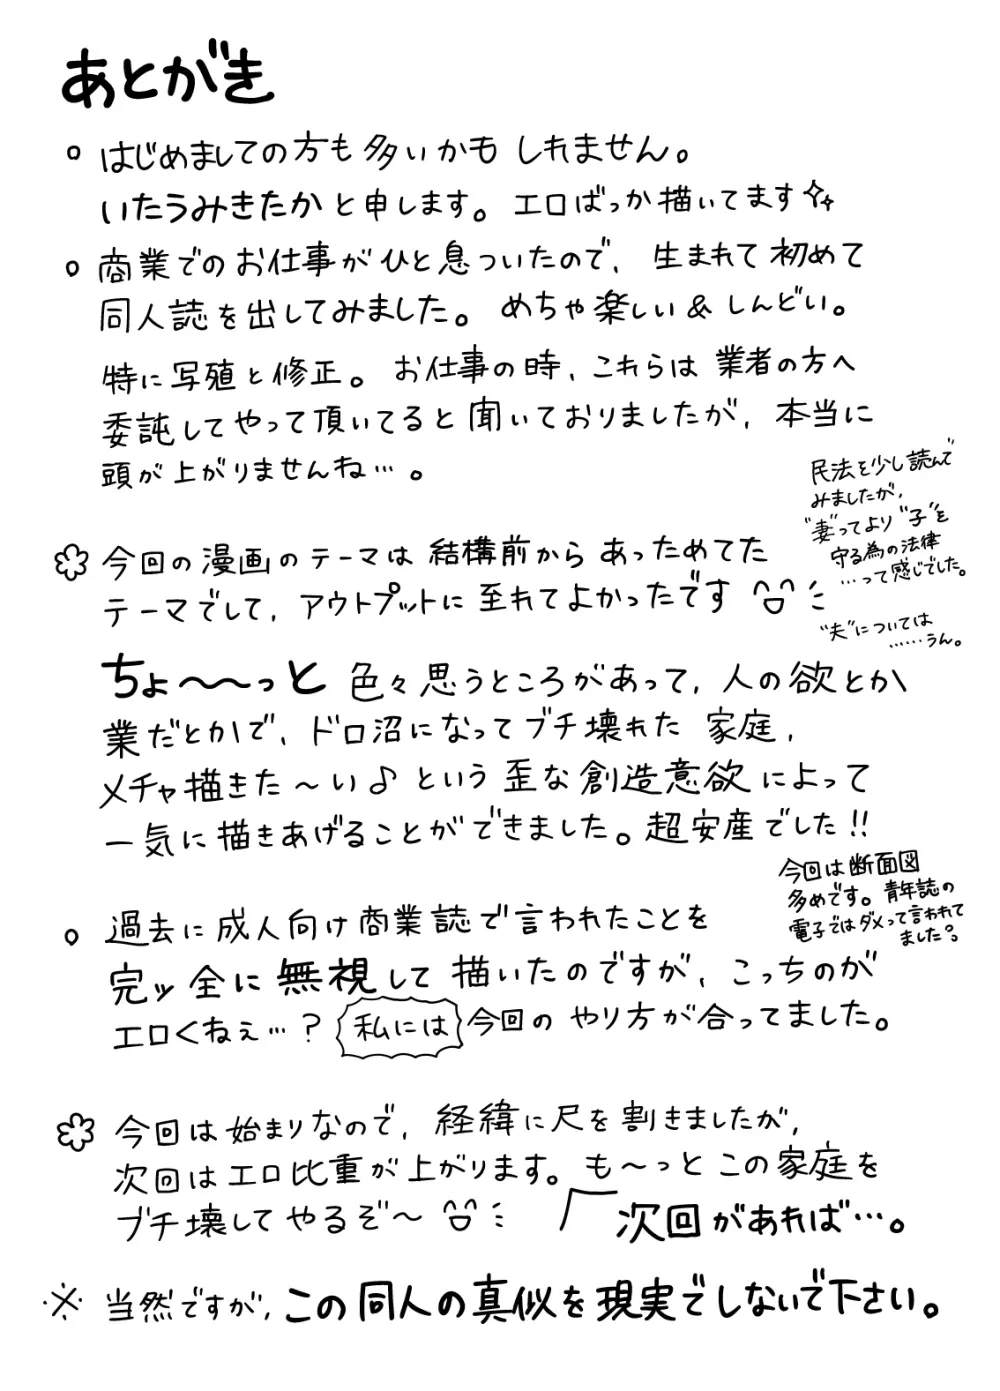 あとがき
。はじめましての方も多いかもしれません。
いたうみきたかと申します。エロばっか描いてます✧
。商業でのお仕事がひと息ついたので、生まれて初めて
同人誌を出してみました。めちゃ楽しい&しんどい。
特に写殖と修正。お仕事の時、これらは業者の方へ
委託してやって頂いてると聞いておりましたが、本当に
頭が上がりませんね…。
民法を少し読んで
みましたが、
"妻"ってより"子"を
守る為の法律
…って感じでした。
"夫"については
……うん。
今回の漫画のテーマは結構前からあっためてた
テーマでして、アウトプットに至れてよかったです
ちょ〜〜っと色々思うところがあって、人の欲とか
業だとかで、ドロ沼になってブチ壊れた家庭、
メチャ描きた〜い♪という歪な創造意欲によって
一気に描きあげることができました。超安産でした!!
今回は断面図
多めです。青年誌の
電子ではダメって言われて
ました?。
。過去に成人向け商業誌で言われたことを
完ッ全に無視して描いたのですが、こっちのが
エロくねぇ…?私には今回のやり方が合ってました。
今回は始まりなので、経緯に尺を割きましたが、
次回はエロ比重が上がります。も〜っとこの家庭を
ブチ壊してやるぞ〜
次回があれば…。
※当然ですが、この同人の真似を現実でしないで下さい。